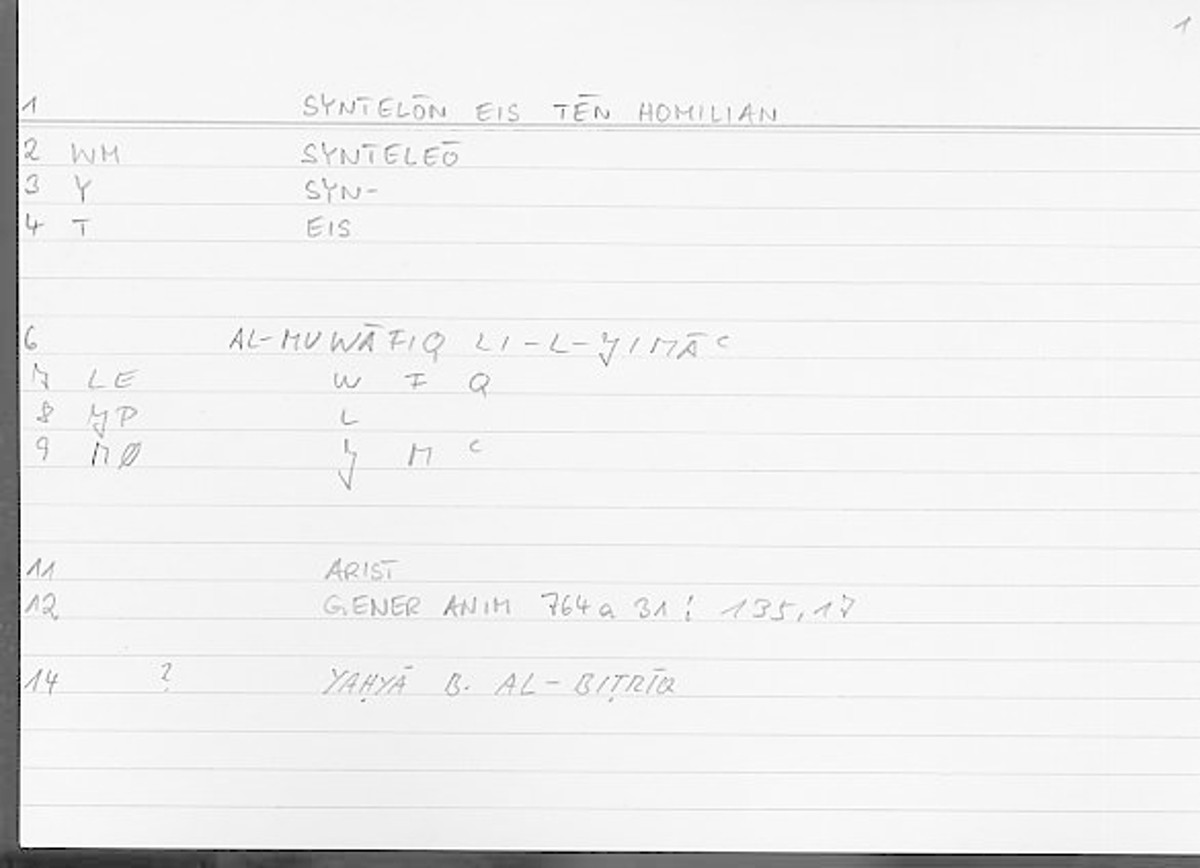 1
1 SYNTELŌN EIS TĒN HOMILIAN
2 WM SYNTELEŌ
3 Y SYN-
4 T EIS
6 AL-MUWĀFIQ LI-L-ǦIMĀʿ
7 LE W F Q
8 JP L
9 MØ Ǧ M ʿ
11 ARIST
12 GENER ANIM 764a 31 ; 135,17
14 ? YAḤYĀ B. AL-BIṬRĪQ